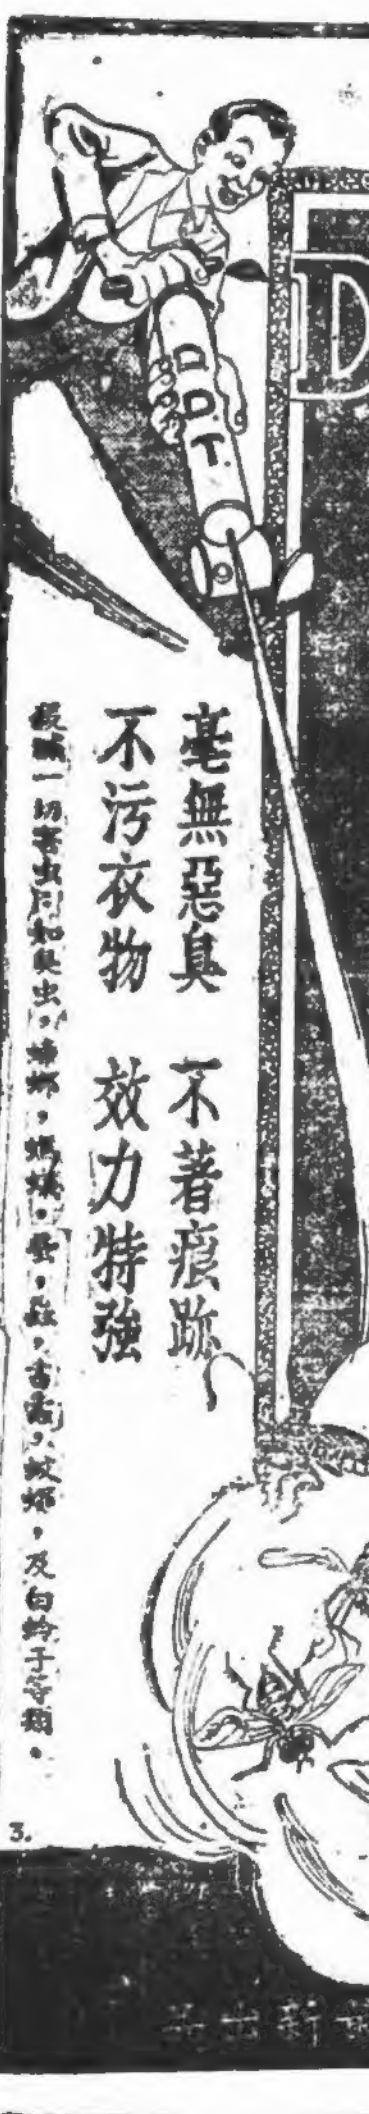 D
D.D.T.
毫無惡臭　不著痕跡
不污衣物　效力特強
一切害虫　臭虫，蟑螂，螞蟻，蚤，蝨，蚊蠅，及白蛉子等類。
3.